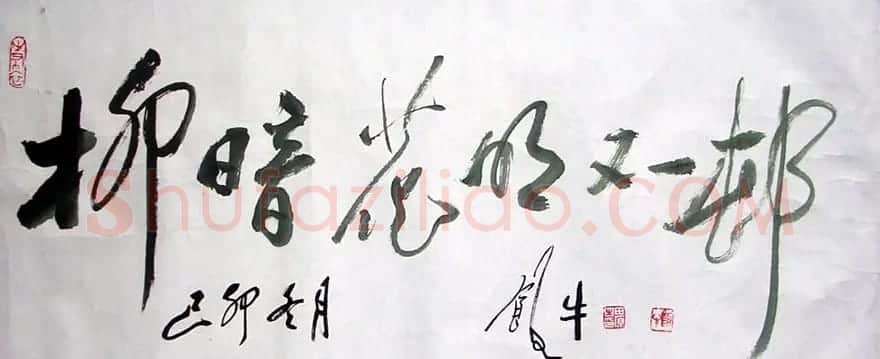 柳暗花明又一邨
己卯冬月
牛
Shufaziliao.COM